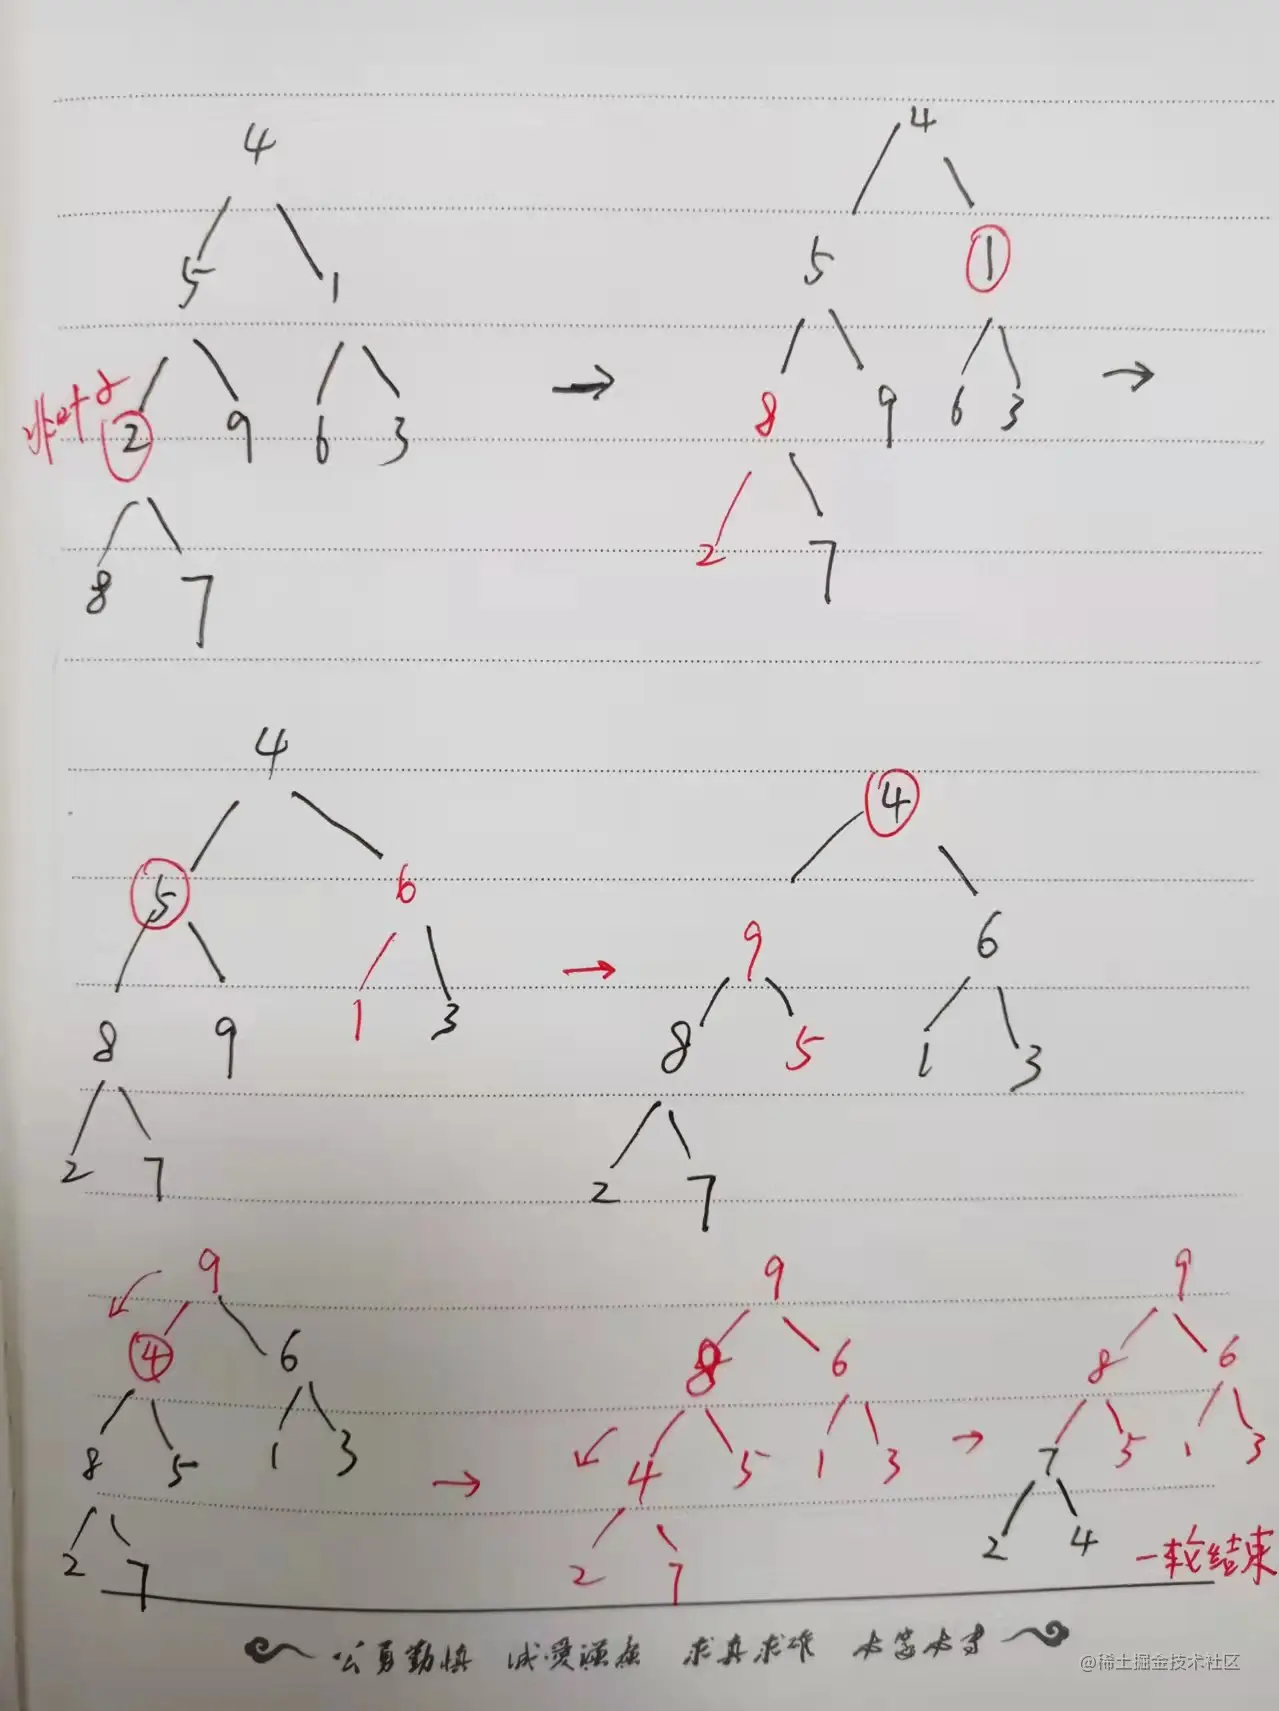 4 4
5 1 5 1
非叶子 2 9 6 3 → 8 9 6 3 →
8 7 2 7
4 4
5 6 → 9 6
8 9 1 3 8 5 1 3
2 7 2 7
9 9 9
4 6 8 6 8 6
8 5 1 3 → 4 5 1 3 → 7 5 1 3
2 7 2 7 2 4 一轮结束
公勇勤慎 诚爱 求真求确
@稀土掘金技术社区